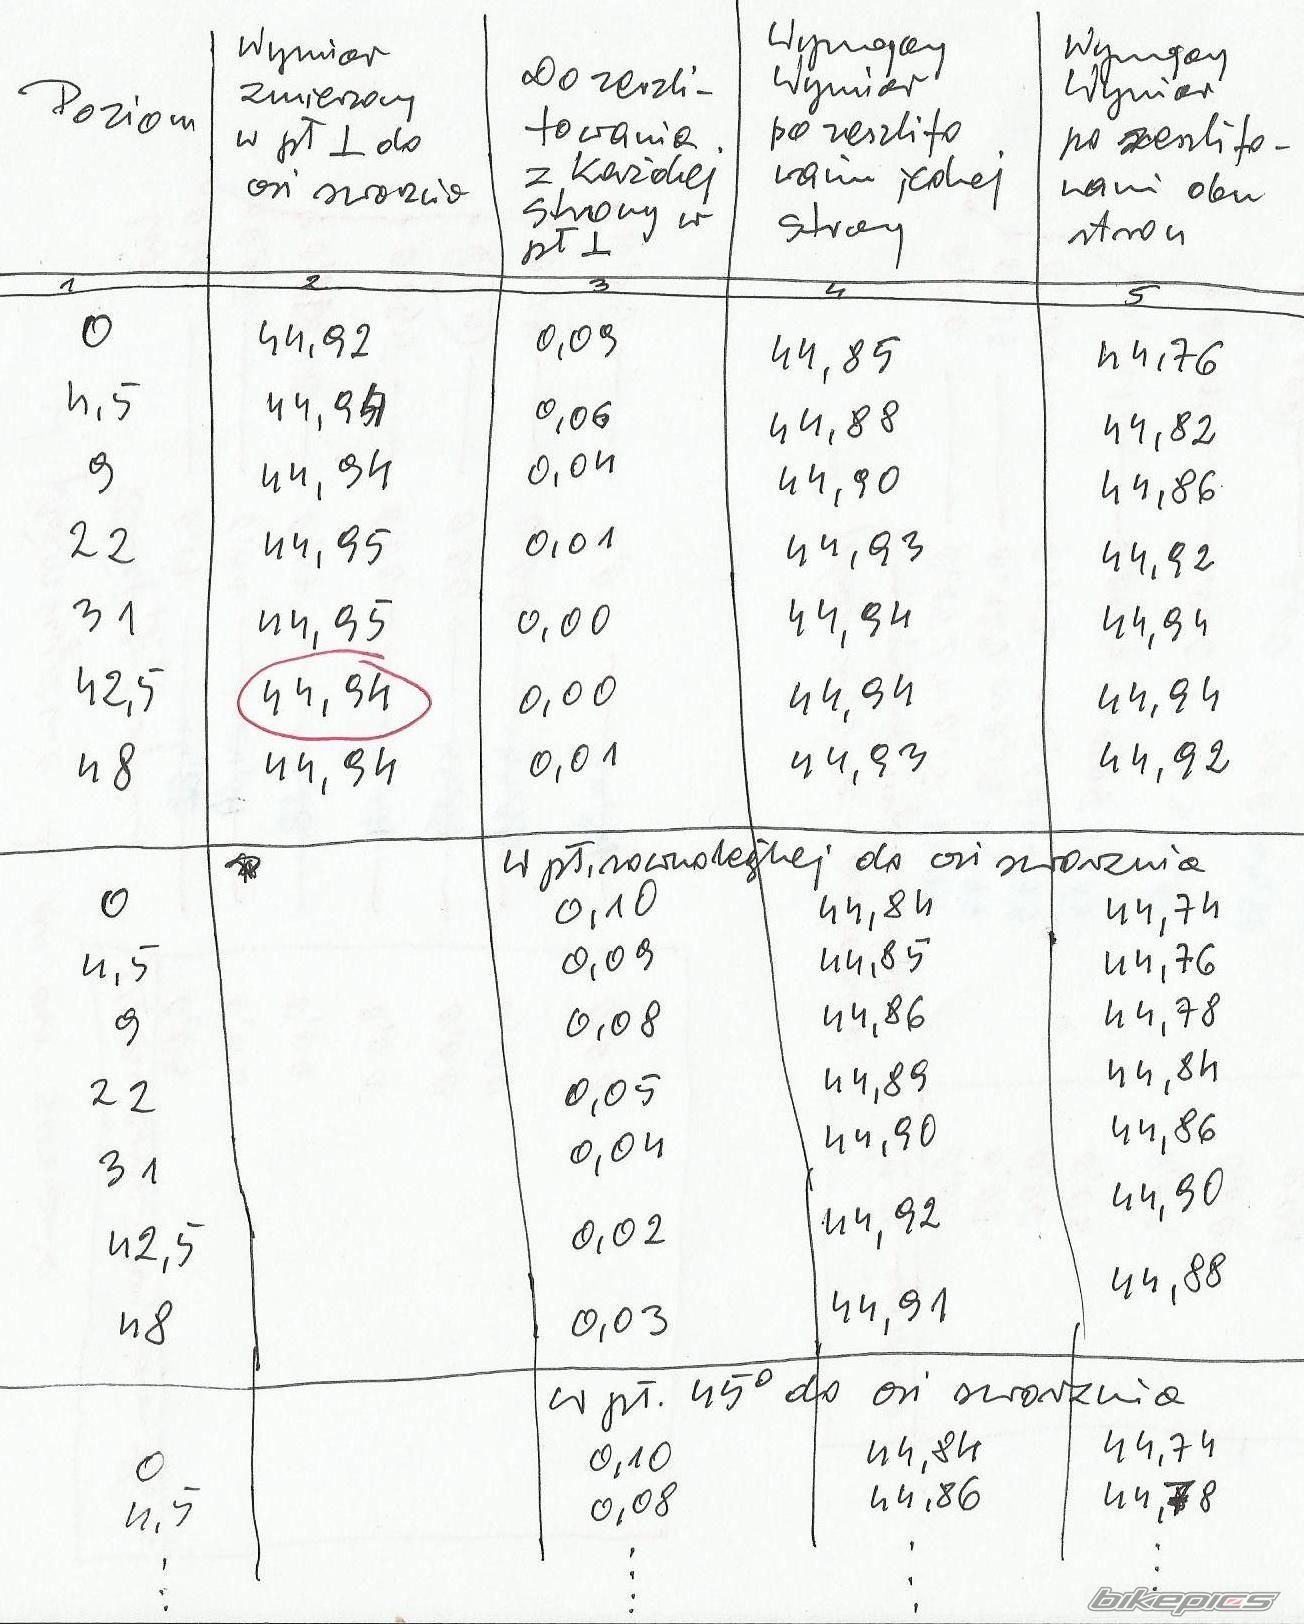 Poziom
Wymiar
zmierzony
w pł ⊥ do
osi sworznia
Do zeszli-
fowania
z każdej
strony w
pł ⊥
Wymagany
Wymiar
po zeszlifo
waniu jednej
strony
Wymagany
Wymiar
po zeszlifo-
waniu obu
stron
1 2 3 4 5
0 44,92 0,09 44,85 44,76
4,5 44,94 0,06 44,88 44,82
9 44,94 0,04 44,90 44,86
22 44,95 0,01 44,93 44,92
31 44,95 0,00 44,94 44,94
42,5 44,94 0,00 44,94 44,94
48 44,94 0,01 44,93 44,92
w pł. równoległej do osi sworznia
0 0,10 44,84 44,74
4,5 0,09 44,85 44,76
9 0,08 44,86 44,78
22 0,05 44,89 44,84
31 0,04 44,90 44,86
42,5 0,02 44,92 44,90
48 0,03 44,91 44,88
w pł. 45° do osi sworznia
0 0,10 44,84 44,74
4,5 0,08 44,86 44,78
bikepics